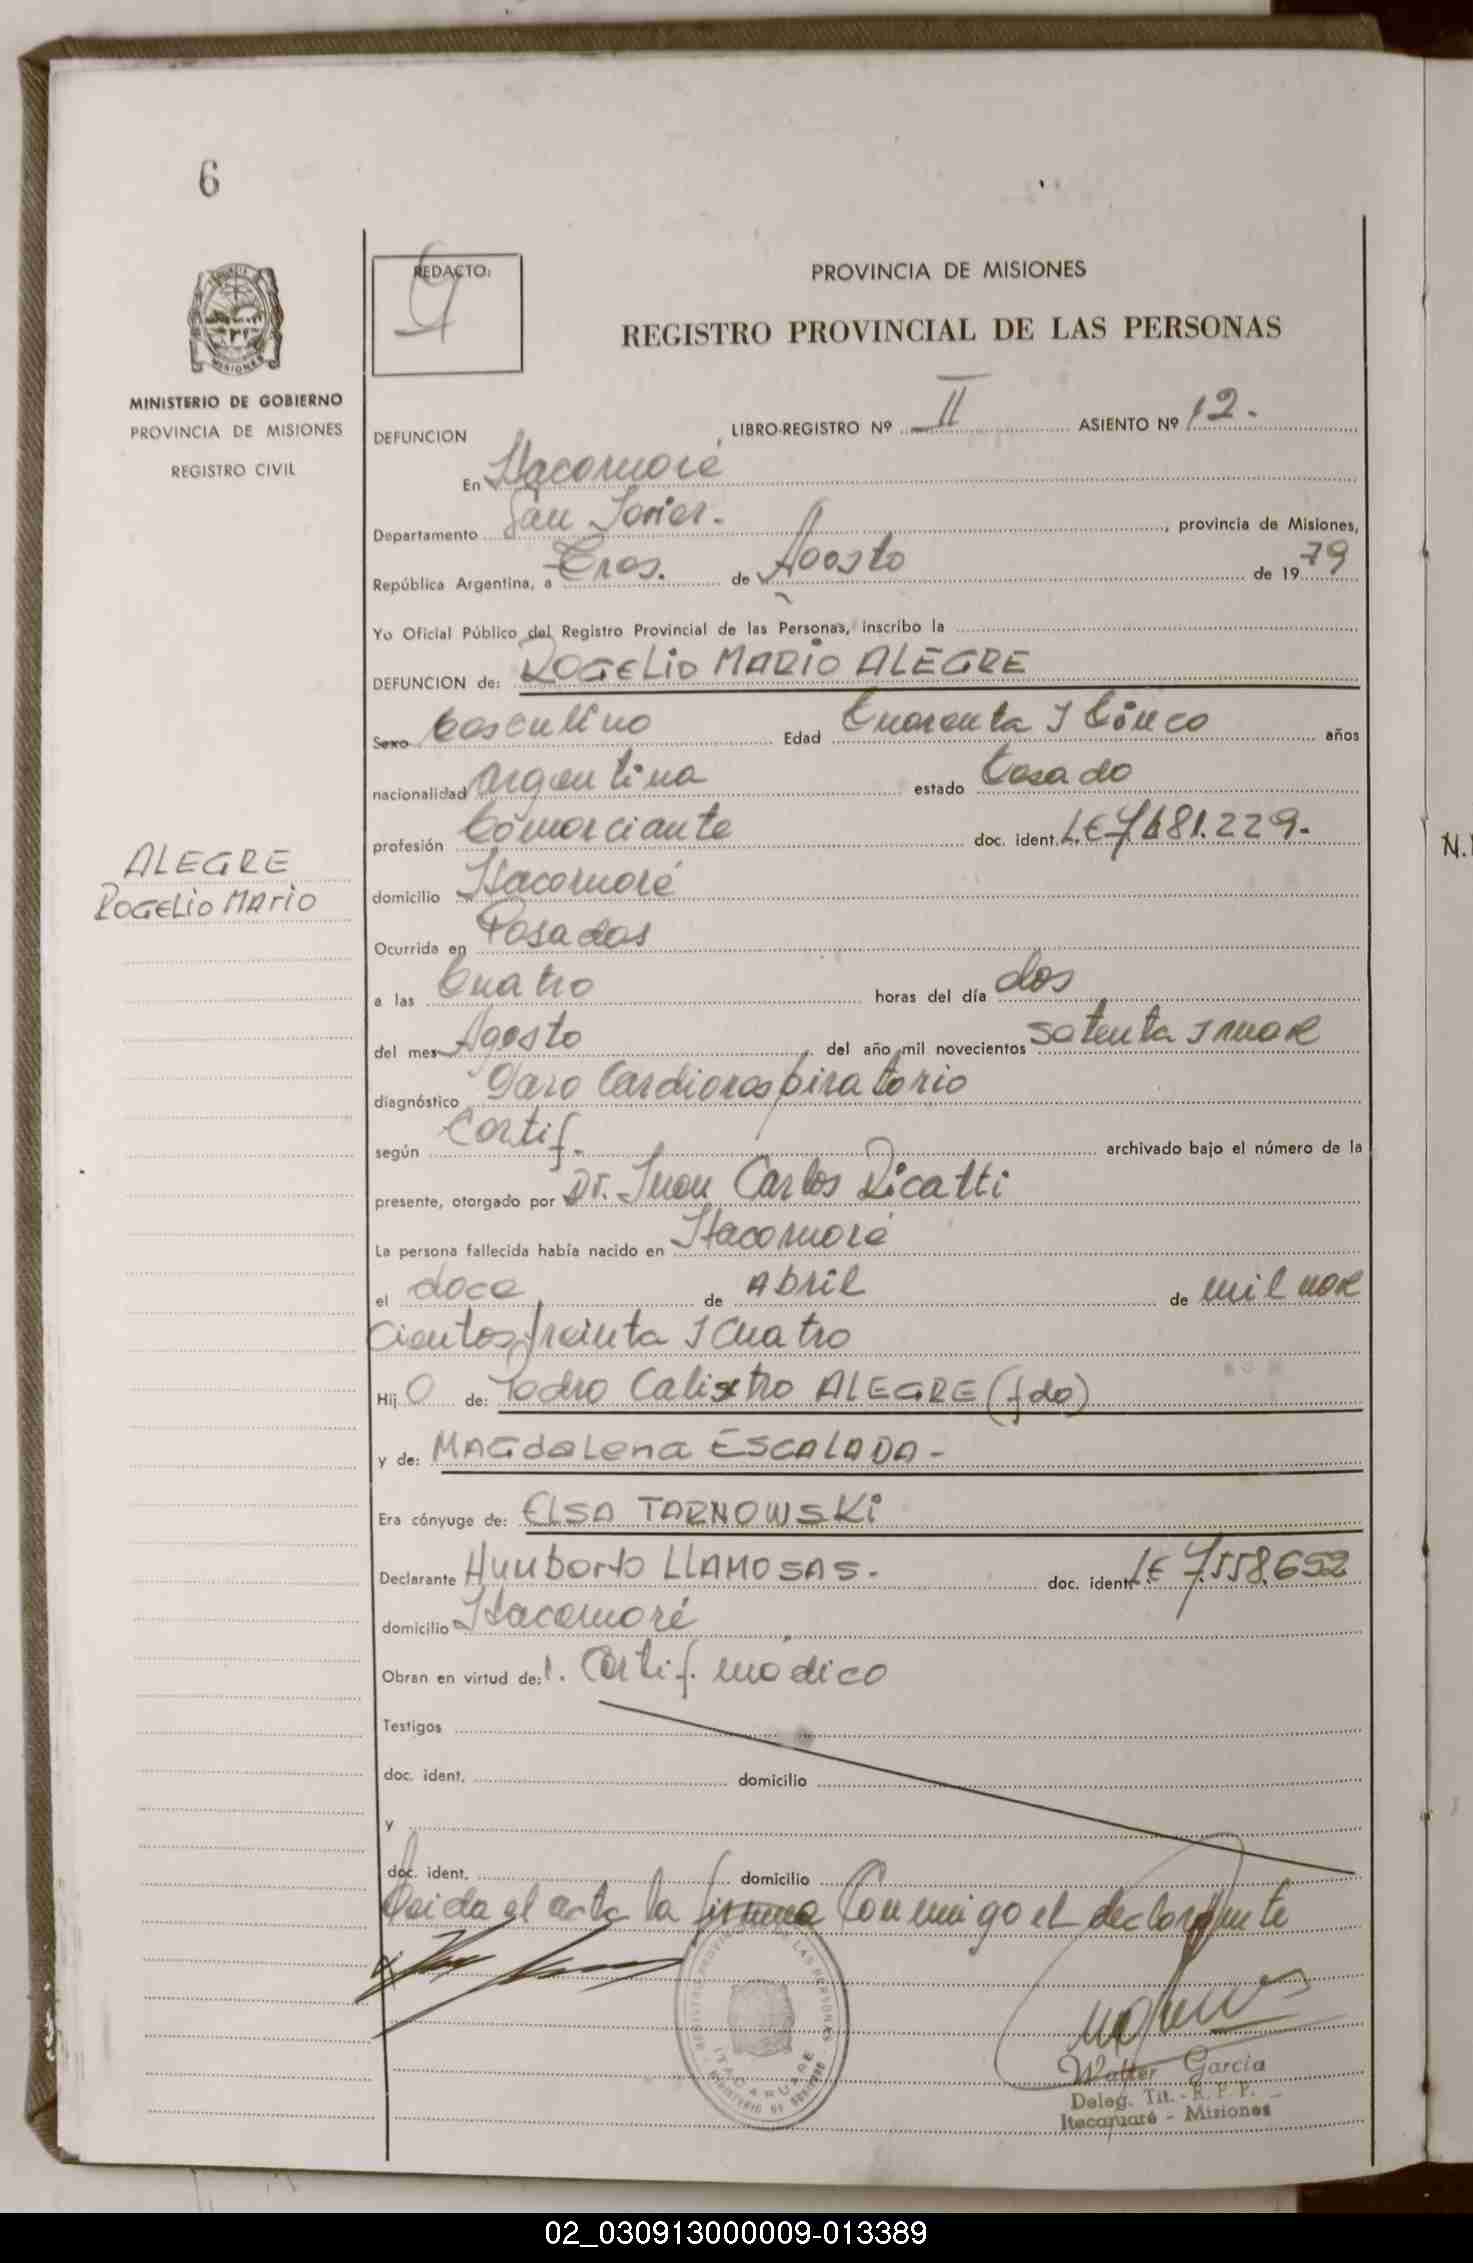 6
REDACTO:
PROVINCIA DE MISIONES
REGISTRO PROVINCIAL DE LAS PERSONAS
MINISTERIO DE GOBIERNO
PROVINCIA DE MISIONES
REGISTRO CIVIL
DEFUNCION LIBRO-REGISTRO Nº II ASIENTO Nº 12.
En Itacaruaré
Departamento San Javier. , provincia de Misiones,
República Argentina, a Tres. de Agosto de 1979
Yo Oficial Público del Registro Provincial de las Personas, inscribo la
DEFUNCION de: ROGELIO MARIO ALEGRE
Sexo Masculino Edad Cuarenta y Cinco años
nacionalidad argentina estado Casado
profesión Comerciante doc. ident. L.E 7.681.229.
ALEGRE
ROGELIO MARIO
domicilio Itacaruaré
Ocurrida en Posadas
a las Cuatro horas del día dos
del mes Agosto del año mil novecientos setenta y nueve
diagnóstico Paro Cardiorespiratorio
según Certif. archivado bajo el número de la
presente, otorgado por Dr. Juan Carlos Ricatti
La persona fallecida había nacido en Itacaruaré
el doce de Abril de mil nove
cientos treinta y Cuatro
Hijo de: Pedro Calixtro ALEGRE (fdo)
y de: MAGdaLena ESCALADA -
Era cónyuge de: ELSA TARNOWSKi
Declarante Humberto LLAMOSAS. doc. ident. L.E 7.558.652
domicilio Itacaruaré
Obran en virtud de: 1. Certif. medico
Testigos
doc. ident. domicilio
y
doc. ident. domicilio
Leida el acta la firma Conmigo el declarante
REGISTRO PROVINCIAL DE LAS PERSONAS
ITACARUARE
MINISTERIO DE GOBIERNO
Walter Garcia
Deleg. Tit. - R. P. P.
Itacaruaré - Misiones
N.
02_030913000009-013389